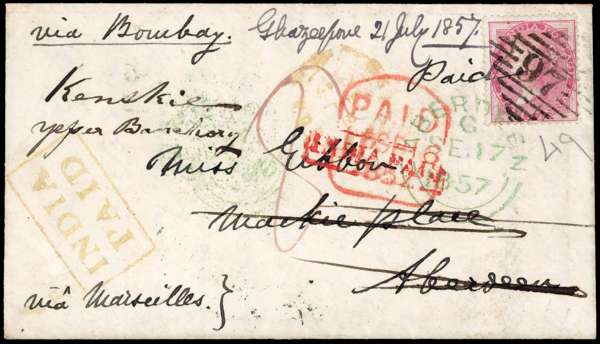 via Bombay. Ghazeepore 21 July 1857.
Paid
97
Kenskie
upper Banchory
PAID
ABERDEEN
G
SE 17
1857
49
Miss Gibbon
Mackie place
Aberdeen
INDIA
PAID
viâ Marseilles.